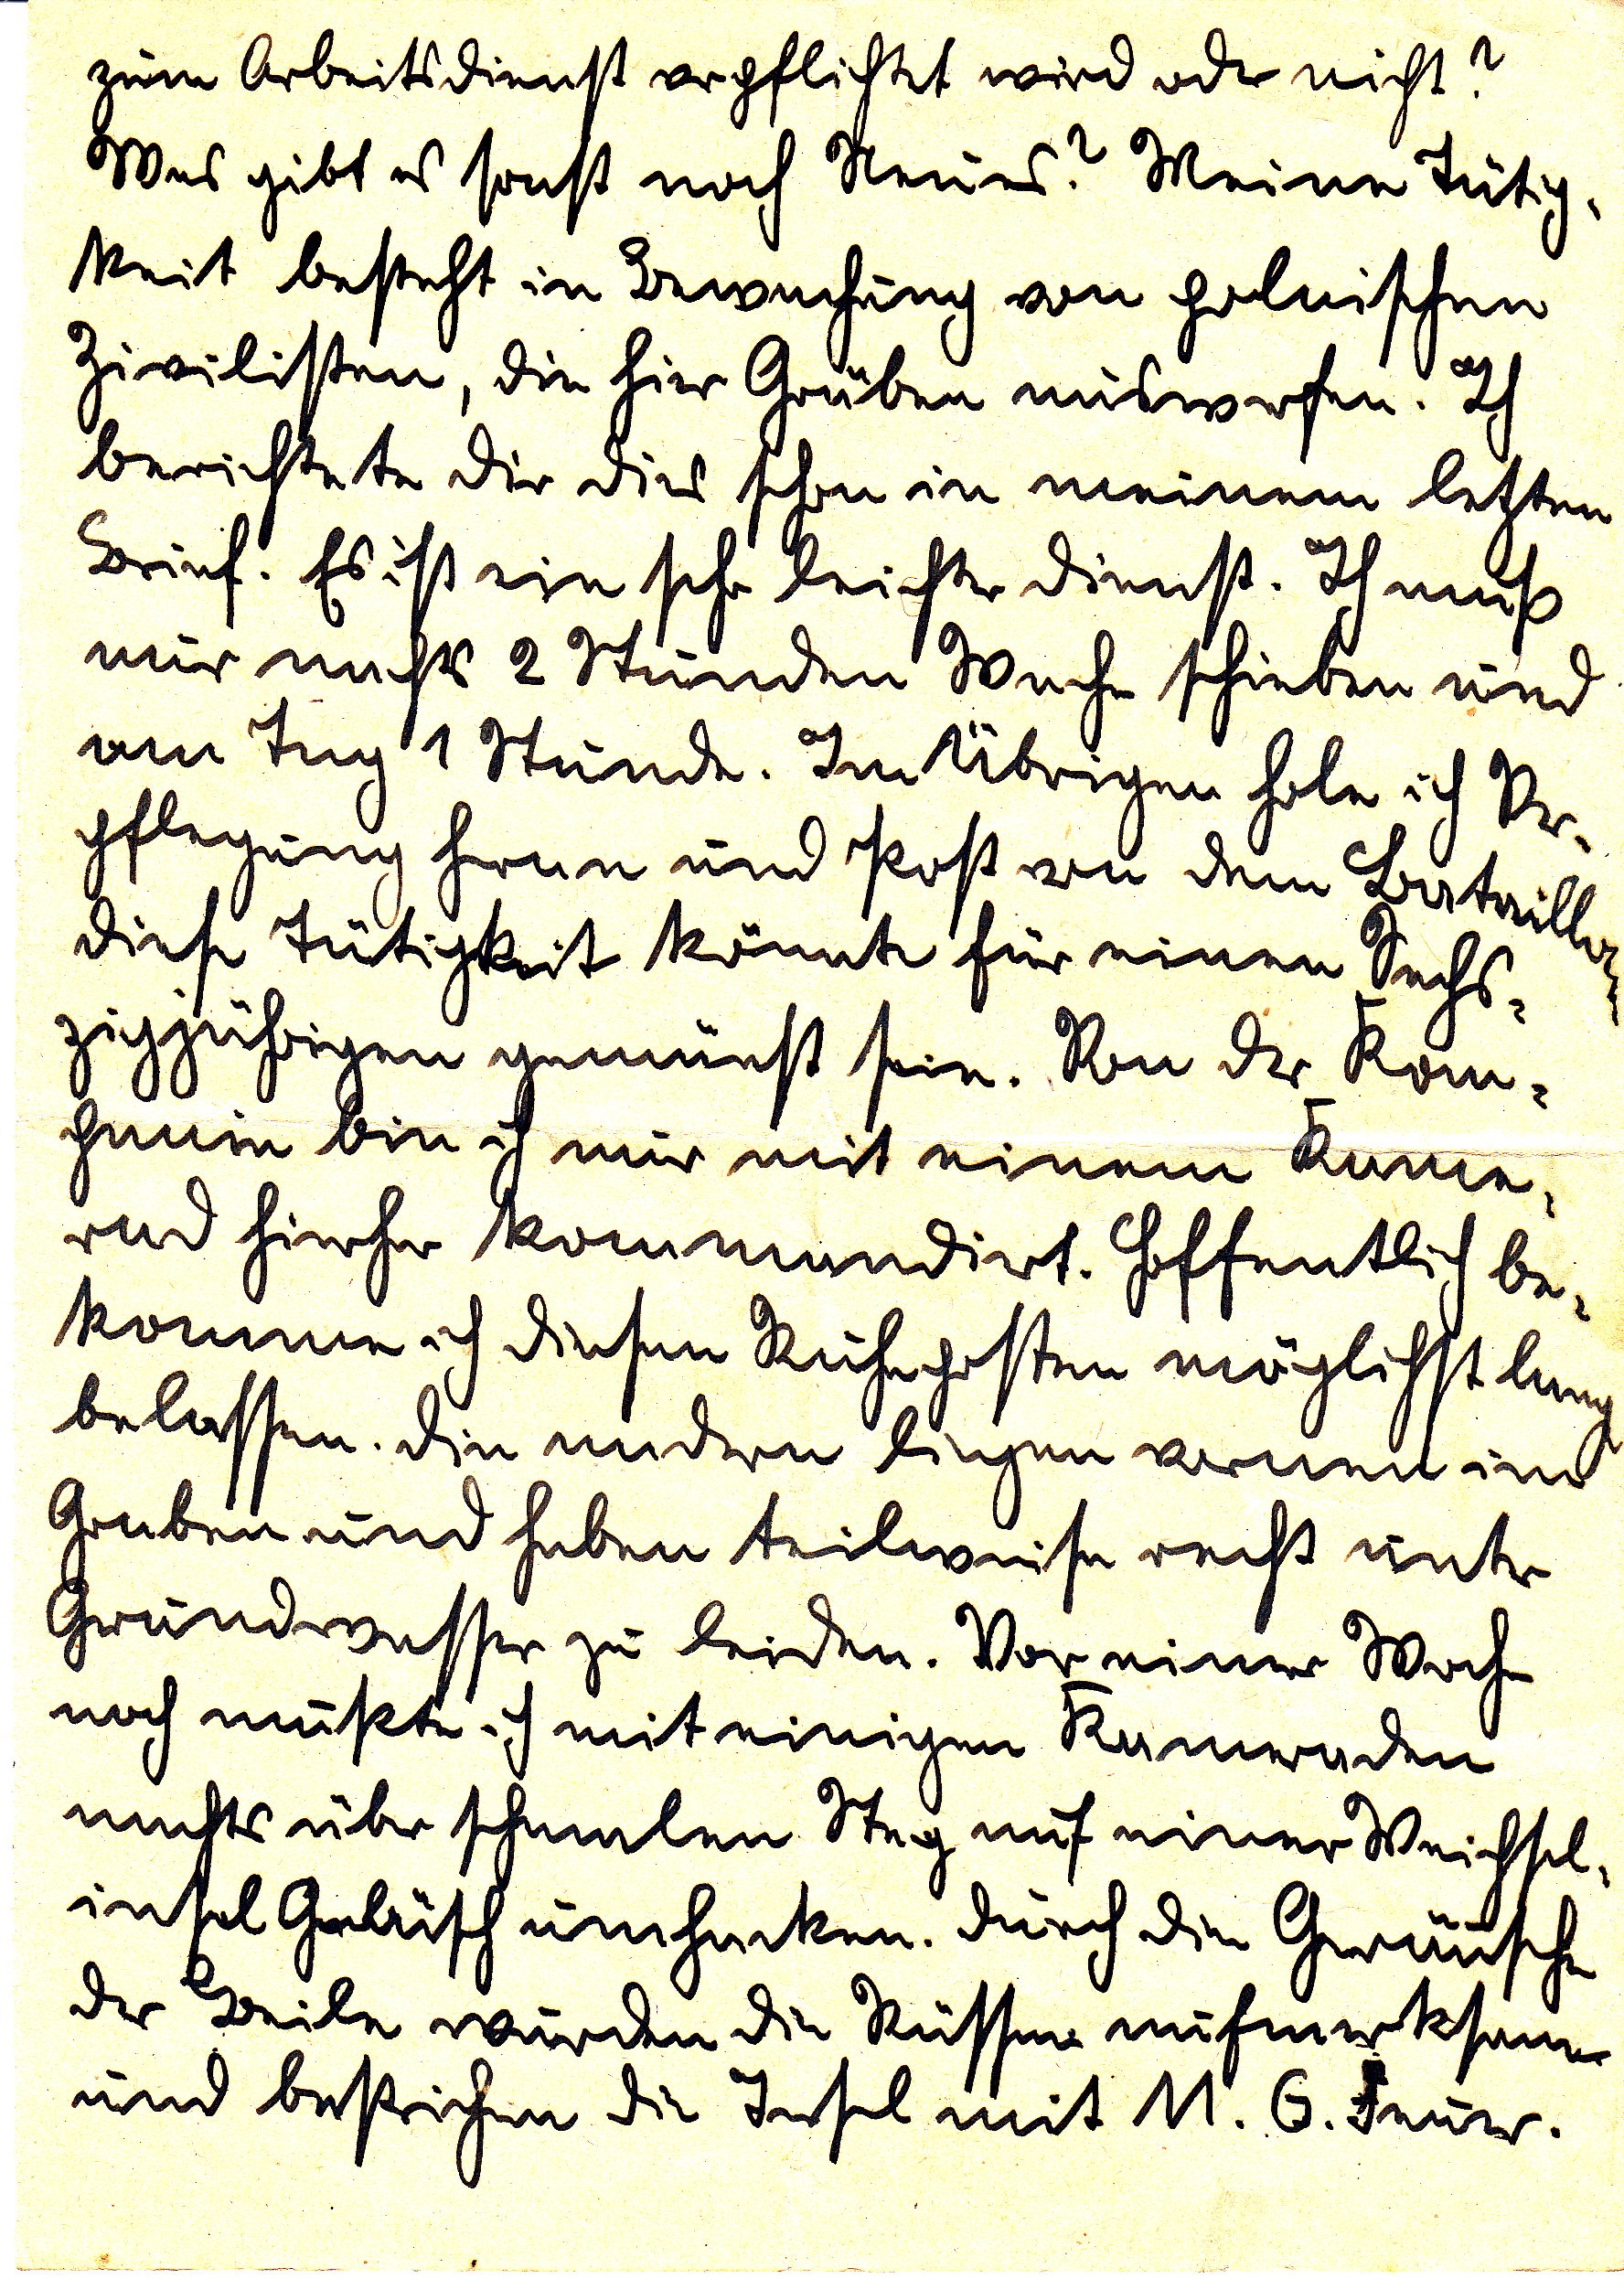 zum Arbeitsdienst verpflichtet wird oder nicht?
Was gibt es sonst noch Neues? Meine Tätig-
keit besteht in Bewachung von polnischen
Zivilisten, die hier Gräben auswerfen. Ich
berichtete dir dies schon in meinem letzten
Brief. Es ist ein sehr leichter Dienst. Ich muß
nur nachts 2 Stunden Wache schieben und
am Tag 1 Stunde. Im Übrigen hole ich Ver-
pflegung heran und Post von dem Bataillon
diese Tätigkeit könnte für einen Sechs-
zigjährigen gemünst sein. Von der Kom-
panie bin ich nur mit einem Kame-
rad hierher kommandiert. Hoffentlich be-
komme ich diesen Ruheposten möglichst lang
belassen. Die andern liegen vornen im
Graben und haben teilweise recht unter
Grundwasser zu leiden. Vor einer Woche
noch mußte ich mit einigen Kameraden
nachts über schmalen Steg auf einer Weichsel-
insel Gebüsch umhacken. Durch die Geräusche
der Beile wurden die Russen aufmerksam
und bestrichen die Insel mit M. G. Feuer.